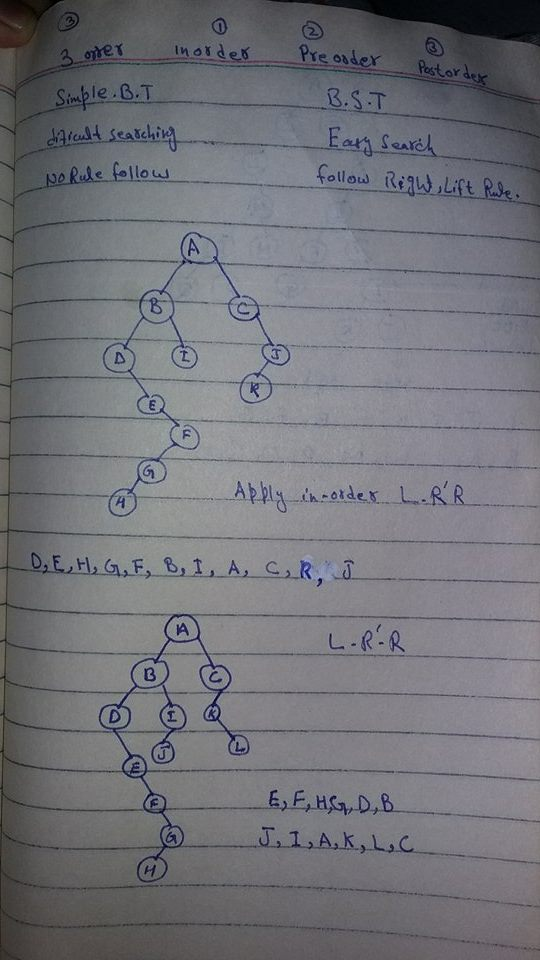 ③ ① ② ③
3 orrer Inorder Preorder Postorder
Simple.B.T B.S.T
dificult searching Easy Search
No Rule follow follow Right, Lift Rule.
A
B C
D I J
K
E
F
G
H
Apply in-order L-R'R
D, E, H, G, F, B, I, A, C, R, J
A
L-R'-R
B C
D I K
J L
E
F
E, F, H, G, D, B
G
J, I, A, K, L, C
H